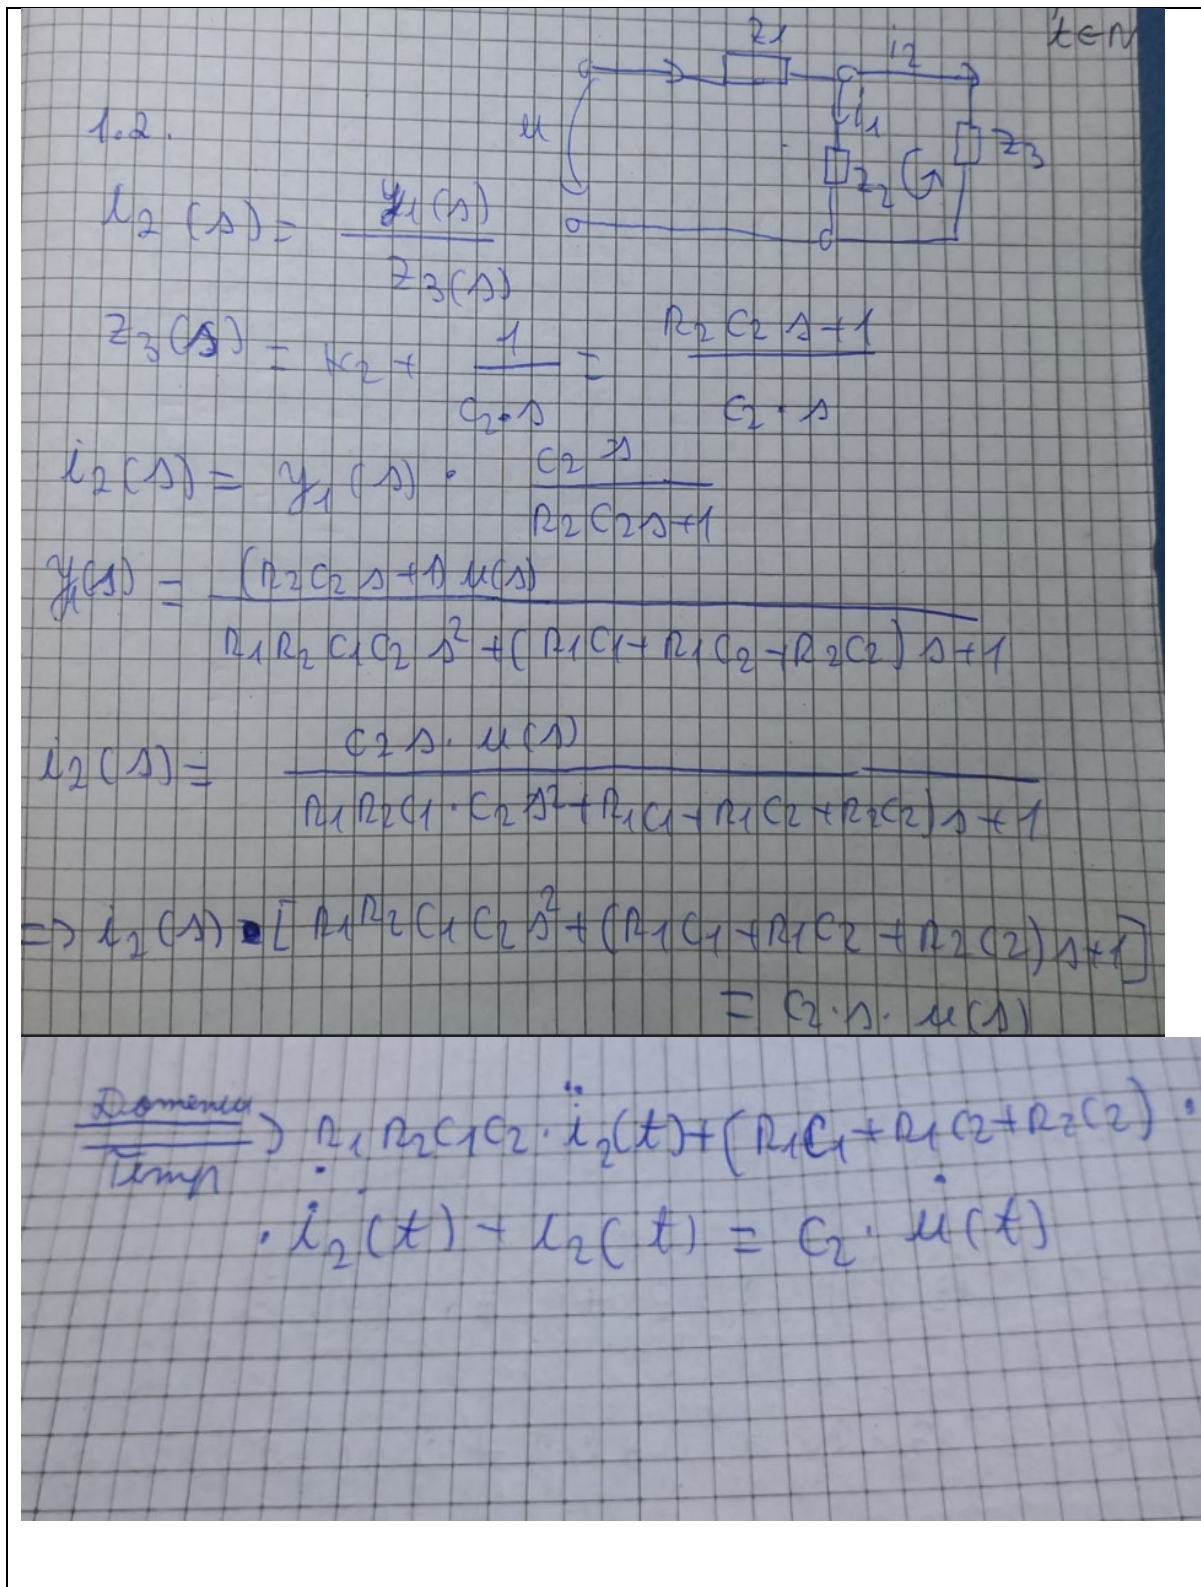 t∈N
Z1
i2
i1
u
Z2
Z3
1.2.
i2(s) = y1(s) / Z3(s)
Z3(s) = R2 + 1 / (C2·s) = (R2C2s+1) / (C2·s)
i2(s) = y1(s) · C2s / (R2C2s+1)
y1(s) = (R2C2s+1) u(s) / R1R2C1C2s² + (R1C1+R1C2+R2C2)s+1
i2(s) = C2s·u(s) / R1R2C1·C2s²+R1C1+R1C2+R2C2)s+1
=> i2(s)·[R1R2C1C2s²+(R1C1+R1C2+R2C2)s+1]
= C2·s·u(s)
Domeniu
Timp
=> R1R2C1C2·ï2(t)+(R1C1+R1C2+R2C2)·
·i̇2(t)+i2(t) = C2·u̇(t)